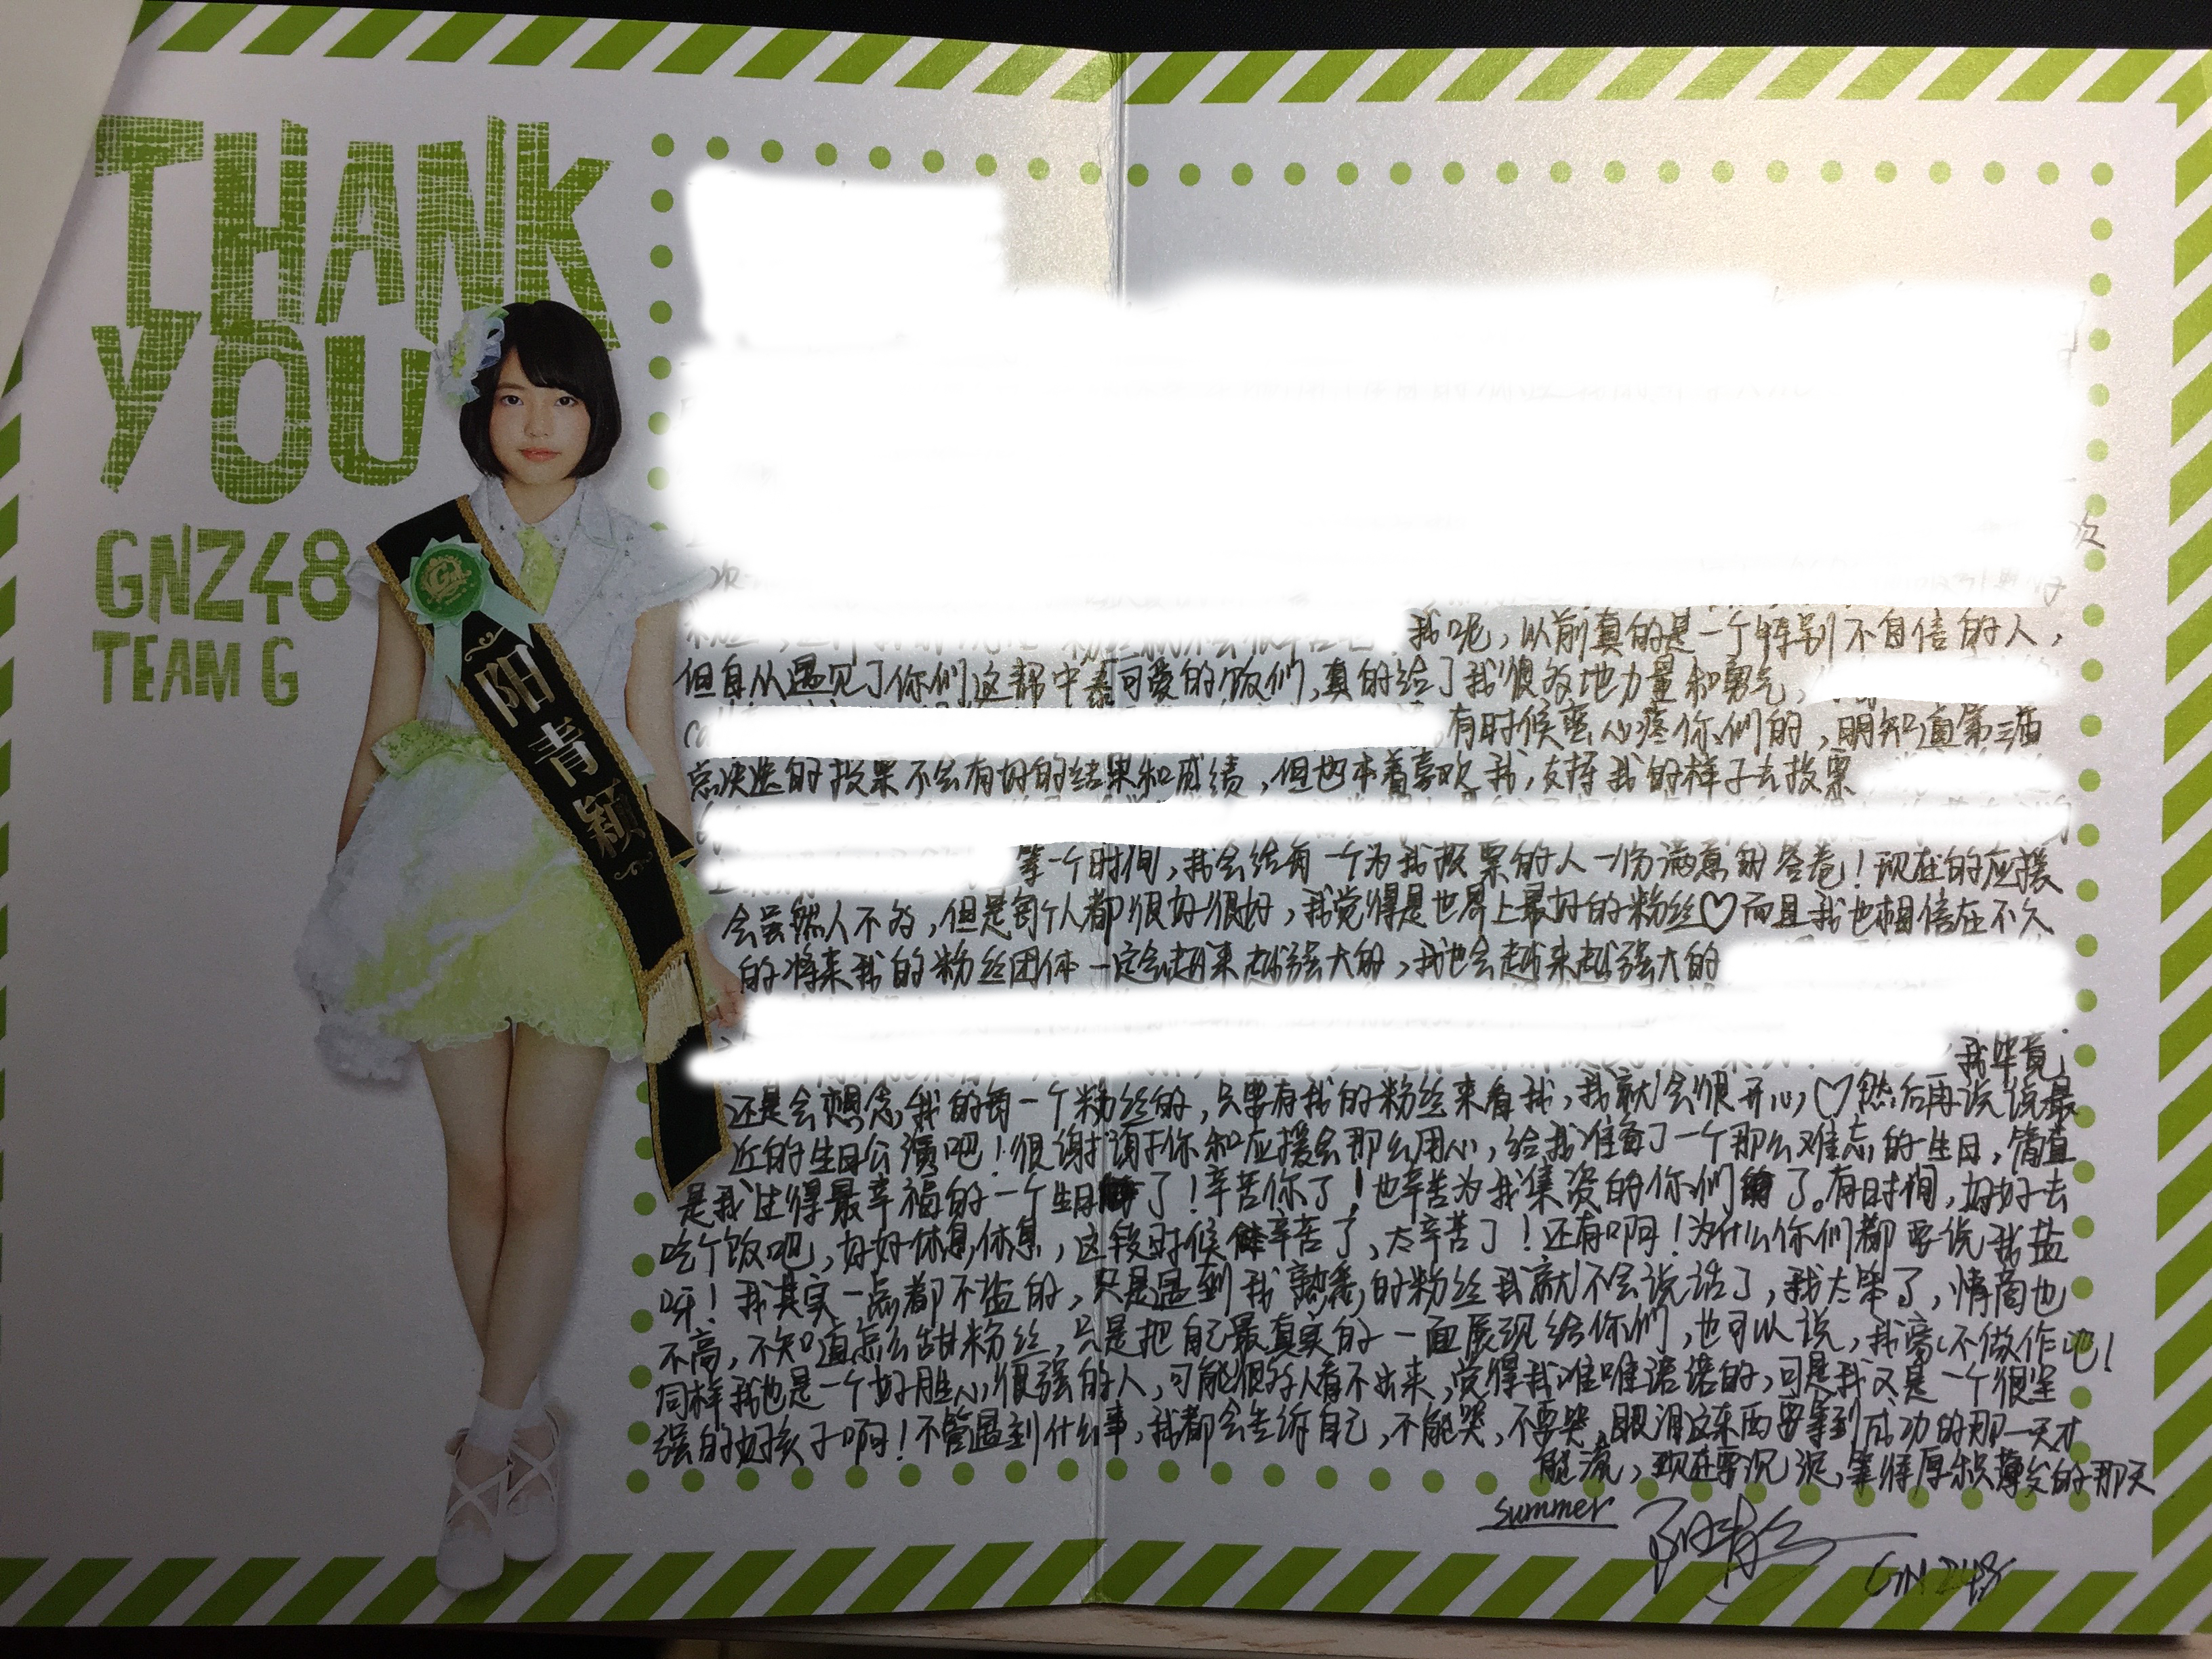 THANK
YOU
GNZ48
TEAM G
阳青颖
我呢，以前真的是一个特别不自信的人，
但自从遇见了你们这帮中毒可爱的饭们，真的给了我很多地力量和勇气，
有时候蛮心疼你们的，明知道第三届
总决选的投票不会有好的结果和成绩，但也本着喜欢我，支持我的样子去投票
等一个时间，我会给每一个为我投票的人一份满意的答卷！现在的应援
会虽然人不多，但是每个人都很好很好，我觉得是世界上最好的粉丝♡而且我也相信在不久
的将来我的粉丝团体一定会越来越强大的，我也会越来越强大的
我毕竟
还是会想念我的每一个粉丝的，只要有我的粉丝来看我，我就会很开心，♡然后再说说最
近的生日公演吧！很谢谢你和应援会那么用心，给我准备了一个那么难忘的生日，简直
是我过得最幸福的一个生日了！辛苦你了！也辛苦为我集资的你们了。有时间，好好去
吃个饭吧，好好休息休息，这段时候辛苦了，太辛苦了！还有啊！为什么你们都要说我盐
呀！我其实一点都不盐的，只是遇到我熟悉的粉丝我就不会说话了，我太笨了，情商也
不高，不知道怎么甜粉丝，只是把自己最真实的一面展现给你们，也可以说，我蛮不做作吧！
同样我也是一个好胜心很强的人，可能很多人看不出来，觉得我唯唯诺诺的，可是我又是一个很坚
强的女孩子啊！不管遇到什么事，我都会告诉自己，不能哭，不要哭，眼泪这东西要等到成功的那一天才
能流，现在要沉淀，等待厚积薄发的那天
summer 阳青颖
GNZ48